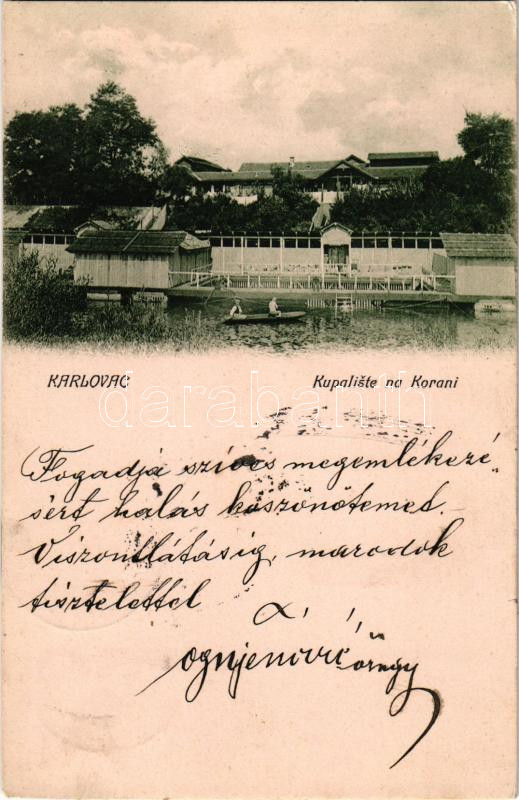 KARLOVAC
Kupalište na Korani
darabanth
Fogadja szíves megemlékezé
sért hálás köszönötemet.
Viszontlátásig, marodok
tisztelettel
Ognjenović
őrngy